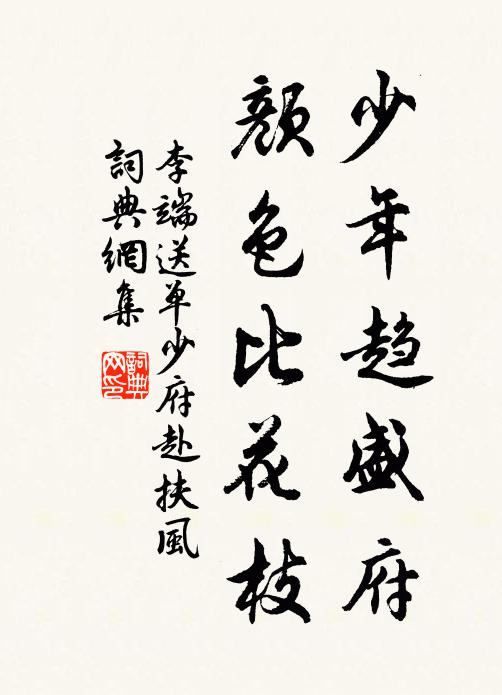 少年趋盛府
颜色比花枝
李端送单少府赴扶風
詞典網集
詞典
网印